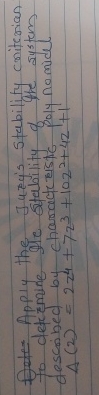 Apply the Jury's stability criterian
to determine the stability of the system
described by characteristic polynomial
Δ(z) = 2z4 + 7z3 + 10z2 + 4z + 1